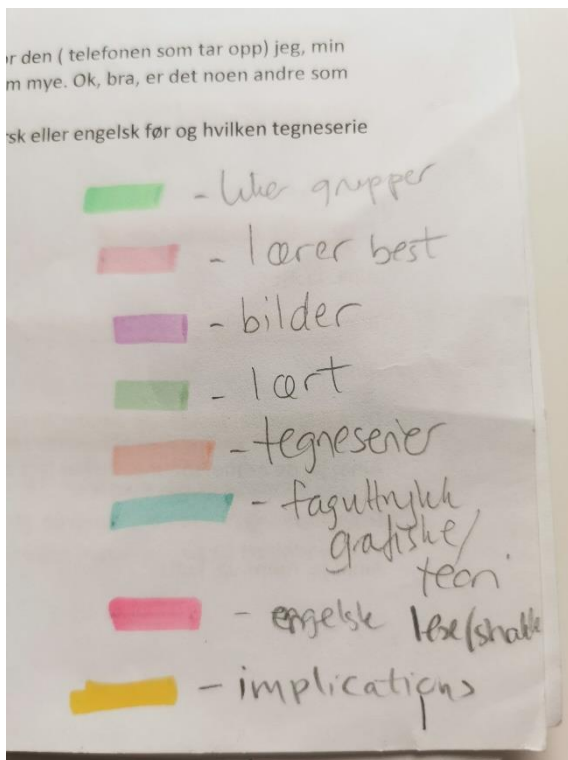 or den ( telefonen som tar opp) jeg, min
m mye. Ok, bra, er det noen andre som
rsk eller engelsk før og hvilken tegneserie
- like grupper
- lærer best
- bilder
- lært
- tegneserier
- faguttrykk
grafiske/
teori
- engelsk lese/snakke
- implications